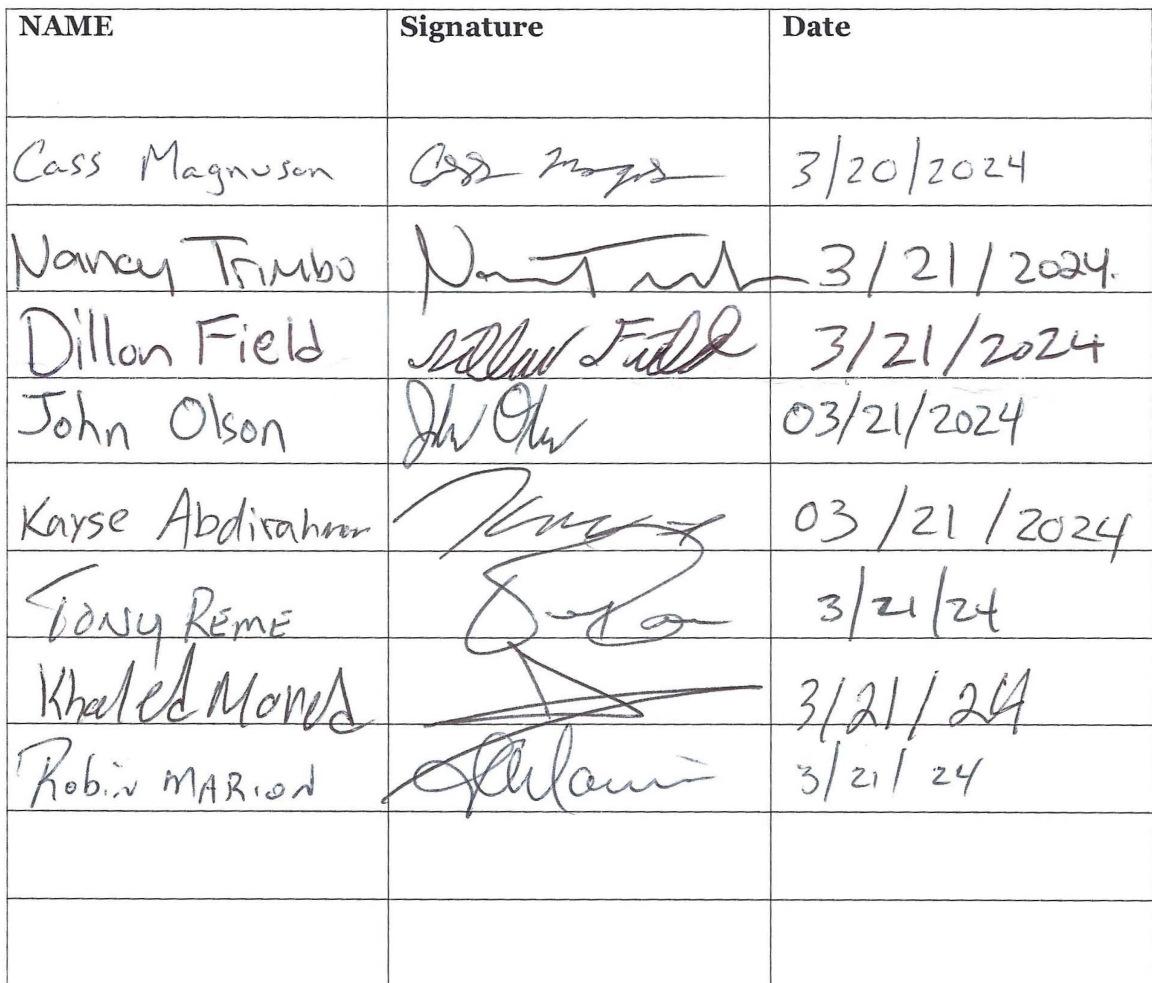 NAME Signature Date
Cass Magnuson 3/20/2024
Nancy Trimbo 3/21/2024.
Dillon Field Dillon Field 3/21/2024
John Olson 03/21/2024
Kayse Abdirahman 03/21/2024
TONY REME 3/21/24
Khaled 3/21/24
Robin MARION 3/21/24